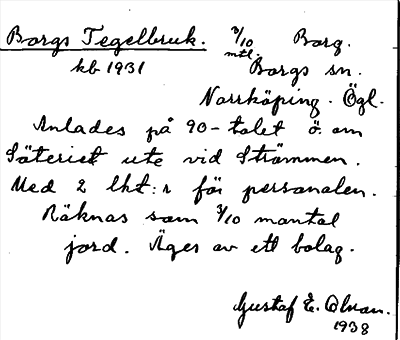 Borgs Tegelbruk. 3/10 mtl. Borg.
kb 1931 Borgs sn.
Norrköping. Ögl.
Anlades på 90-talet ö. om
Säteriet ute vid Strömmen.
Med 2 lht:r för personalen.
Räknas som 3/10 mantal
jord. Äges av ett bolag.
Gustaf E. Olsson.
1938